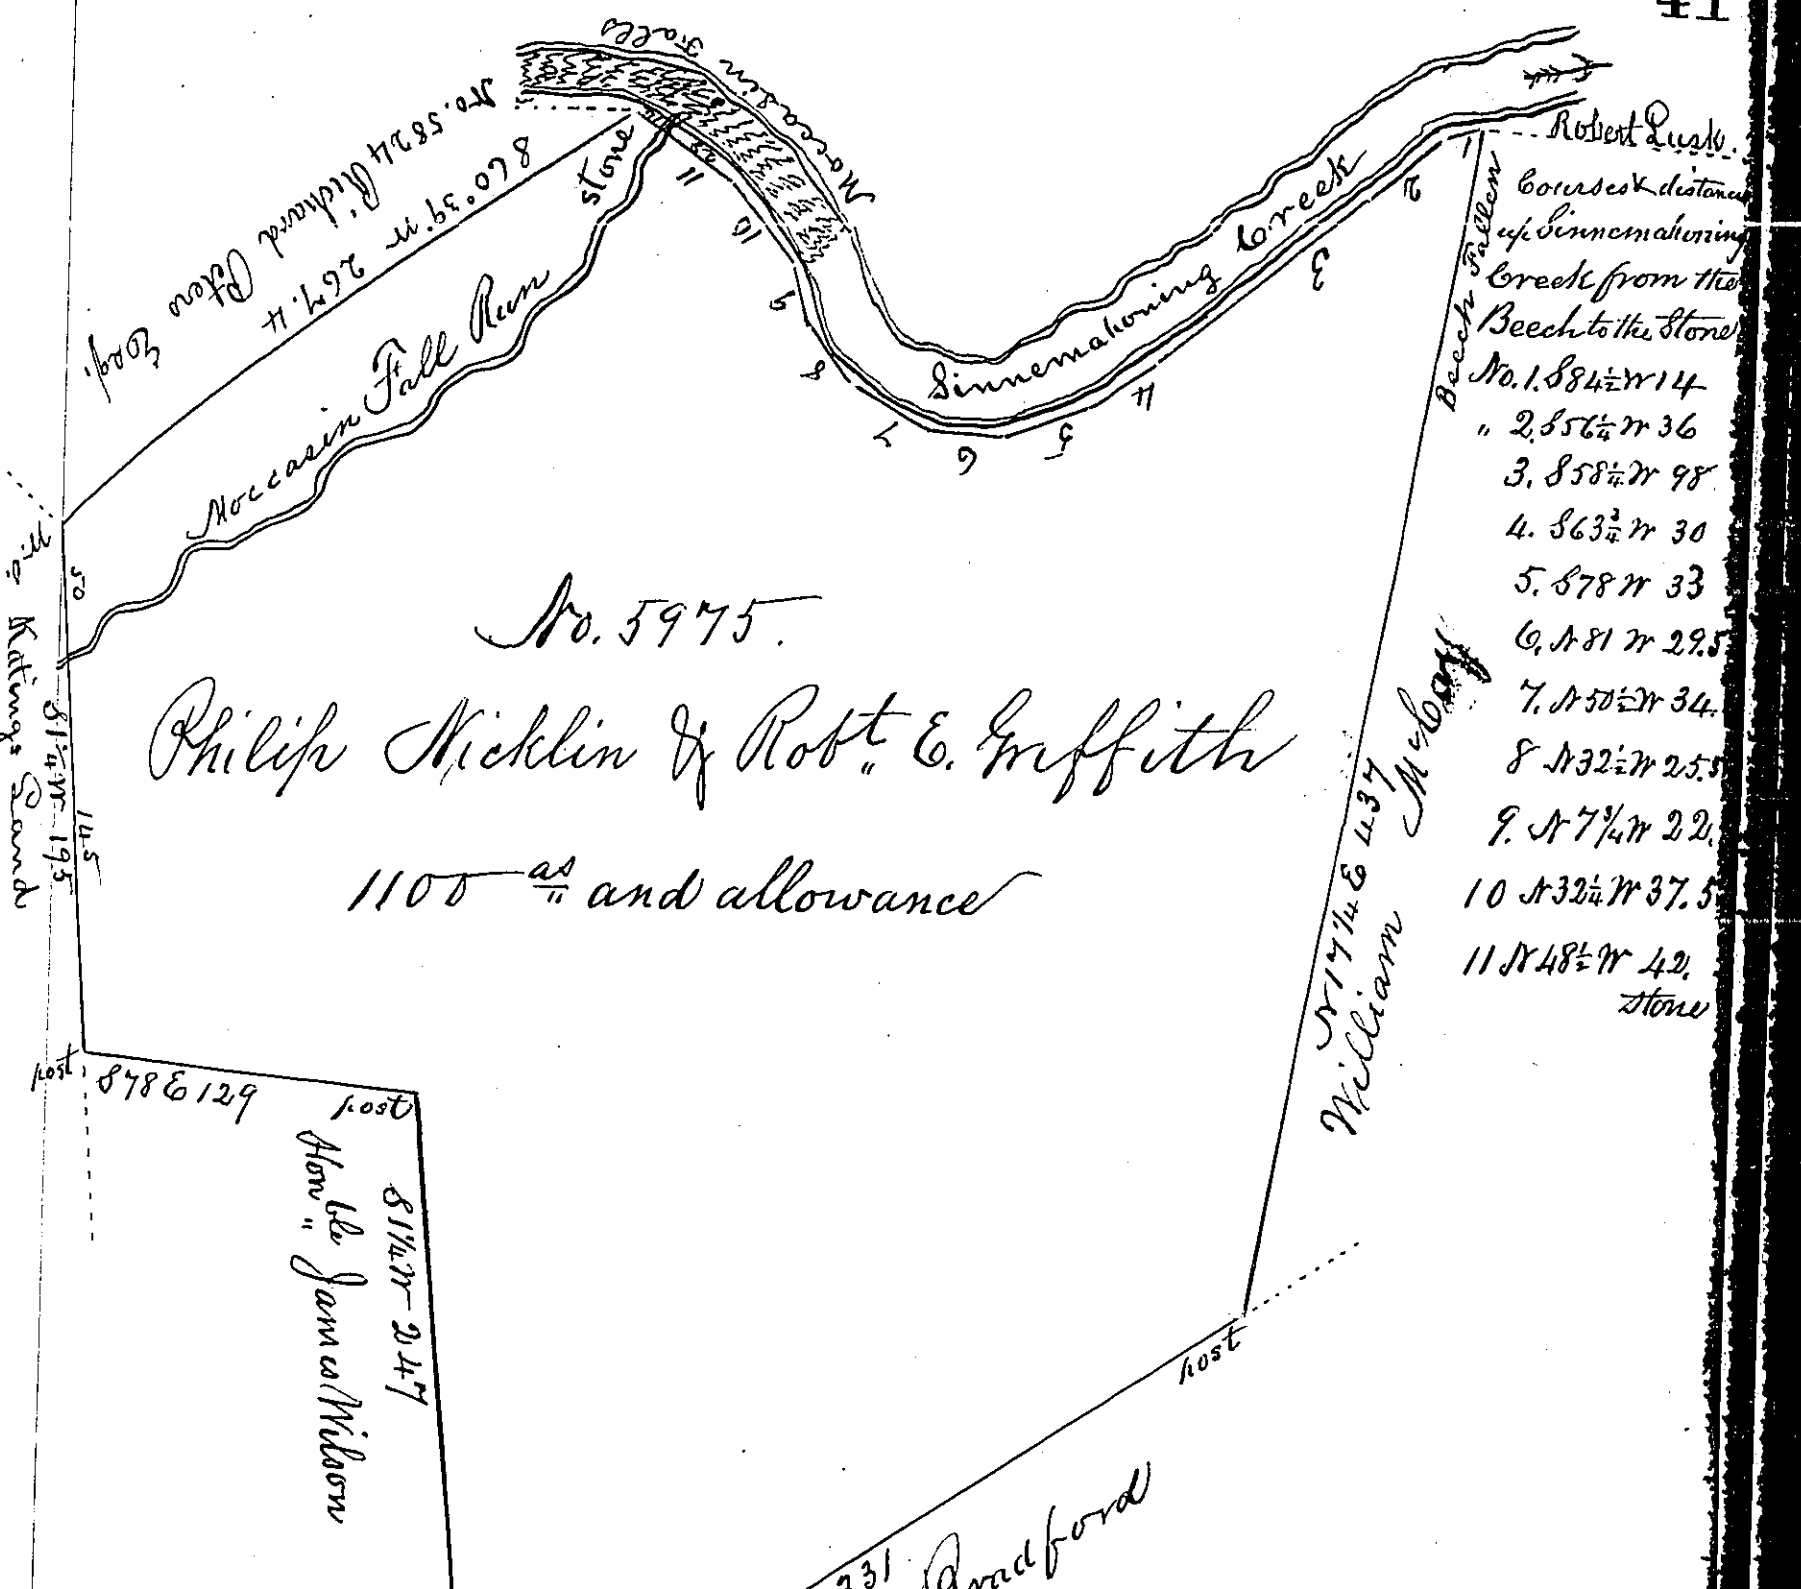 41
Moccasin Falls
No. 5824 Richard Peters Esqr.
S 60° 39' W 267.4
stone
Moccasin Fall Run
Sinnemahoning Creek
1
2
3
4
5
6
7
8
9
10
11
22
Robert Lusk.
Courses & distance
up Sinnemahoning
Creek from the
Beech to the Stone
No. 1. S84½W 14
" 2. S56¼W 36
3. S58¼W 98
4. S63¾W 30
5. S78W 33
6. N81W 29.5
7. N50½W 34.
8 N32½W 25.5
9. N7¾W 22.
10 N32¼W 37.5
11 N48½W 42.
stone
Beech Fallen
No. 5975.
Philip Nicklin & Robt. E. Griffith
1100 as and allowance
50
145
S1¼W 195
Katings Land
N 17¼ E 437
William McCay
post
S78E129
post
S1¼W 247
Honble James Wilson
post
231
Bradford